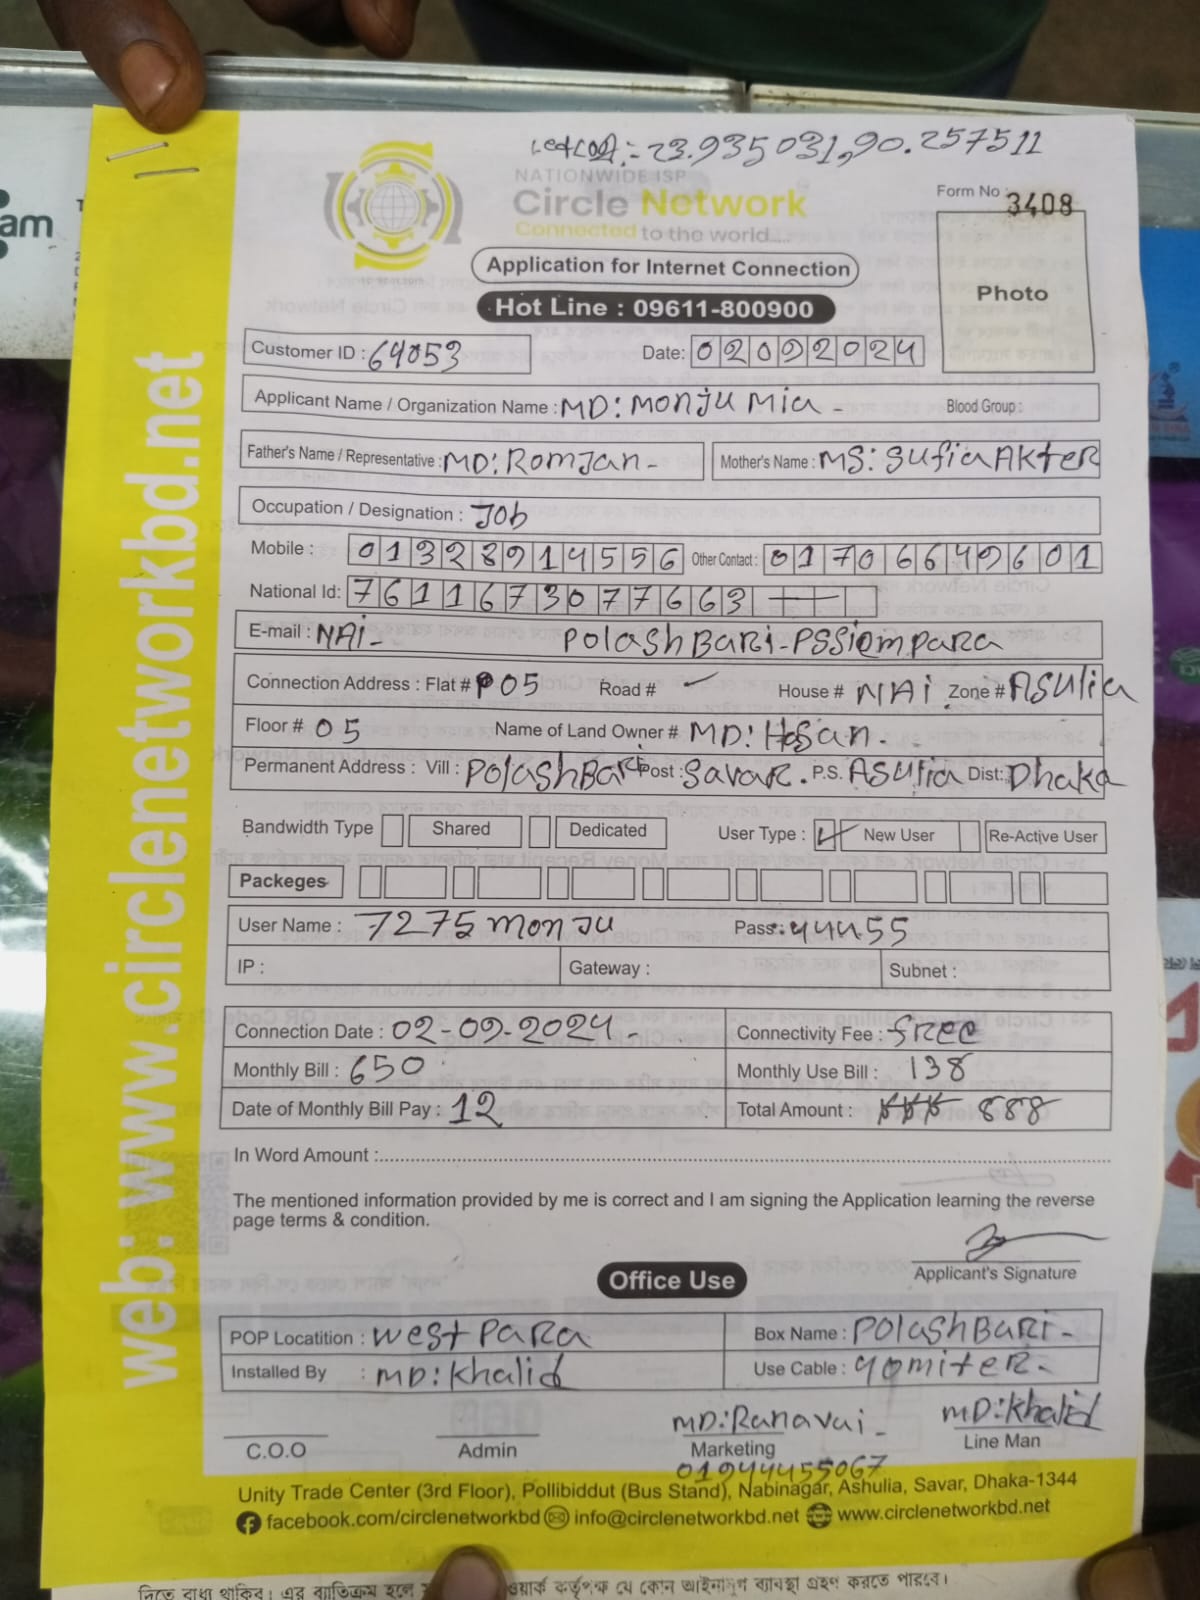 :- 23.935031,90.257511
NATIONWIDE ISP
Circle Network
Connected to the world....
Form No 3408
Application for Internet Connection
Photo
Hot Line : 09611-800900
Customer ID : 64053 Date: 02092024
Applicant Name / Organization Name : MD: MONJU Mia - Blood Group :
Father's Name / Representative : MD: ROMJAN - Mother's Name : MS: Sufia AKTER
Occupation / Designation : Job
Mobile : 01328914556 Other Contact : 01706649601
National Id: 7611673077663
E-mail : NAi- POlASH BARi-PSSiempara
Connection Address : Flat # P05 Road # House # NAi Zone # ASulia
Floor # 05 Name of Land Owner # MD: HoSan.
Permanent Address : Vill : POlASHBARi Post : SavaR. P.S. ASulia Dist: Dhaka
Bandwidth Type Shared Dedicated User Type : New User Re-Active User
Packeges
User Name : 7275monju Pass: 44455
IP : Gateway : Subnet :
Connection Date : 02-09-2024- Connectivity Fee : free
Monthly Bill : 650 Monthly Use Bill : 138
Date of Monthly Bill Pay : 12 Total Amount : 888
In Word Amount :
The mentioned information provided by me is correct and I am signing the Application learning the reverse
page terms & condition.
Applicant's Signature
Office Use
POP Locatition : west PaRa Box Name : POlASHBARi-
Installed By : MD: Khalid Use Cable : 90miteR-
MD: Ranavai - MD: Khalid
C.O.O Admin Marketing Line Man
01944455067
Unity Trade Center (3rd Floor), Pollibiddut (Bus Stand), Nabinagar, Ashulia, Savar, Dhaka-1344
facebook.com/circlenetworkbd info@circlenetworkbd.net www.circlenetworkbd.net
web: www.circlenetworkbd.net
দিতে বাধ্য থাকিব। এর ব্যতিক্রম হলে
ওয়ার্ক কর্তৃপক্ষ যে কোন আইনানুগ ব্যবস্থা গ্রহণ করতে পারবে।
am